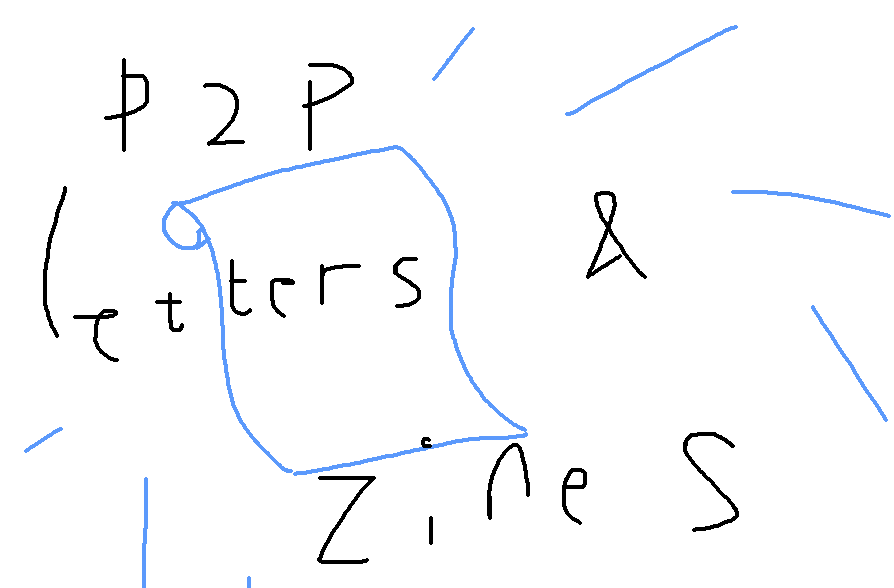 P2P
Letters &
Zines